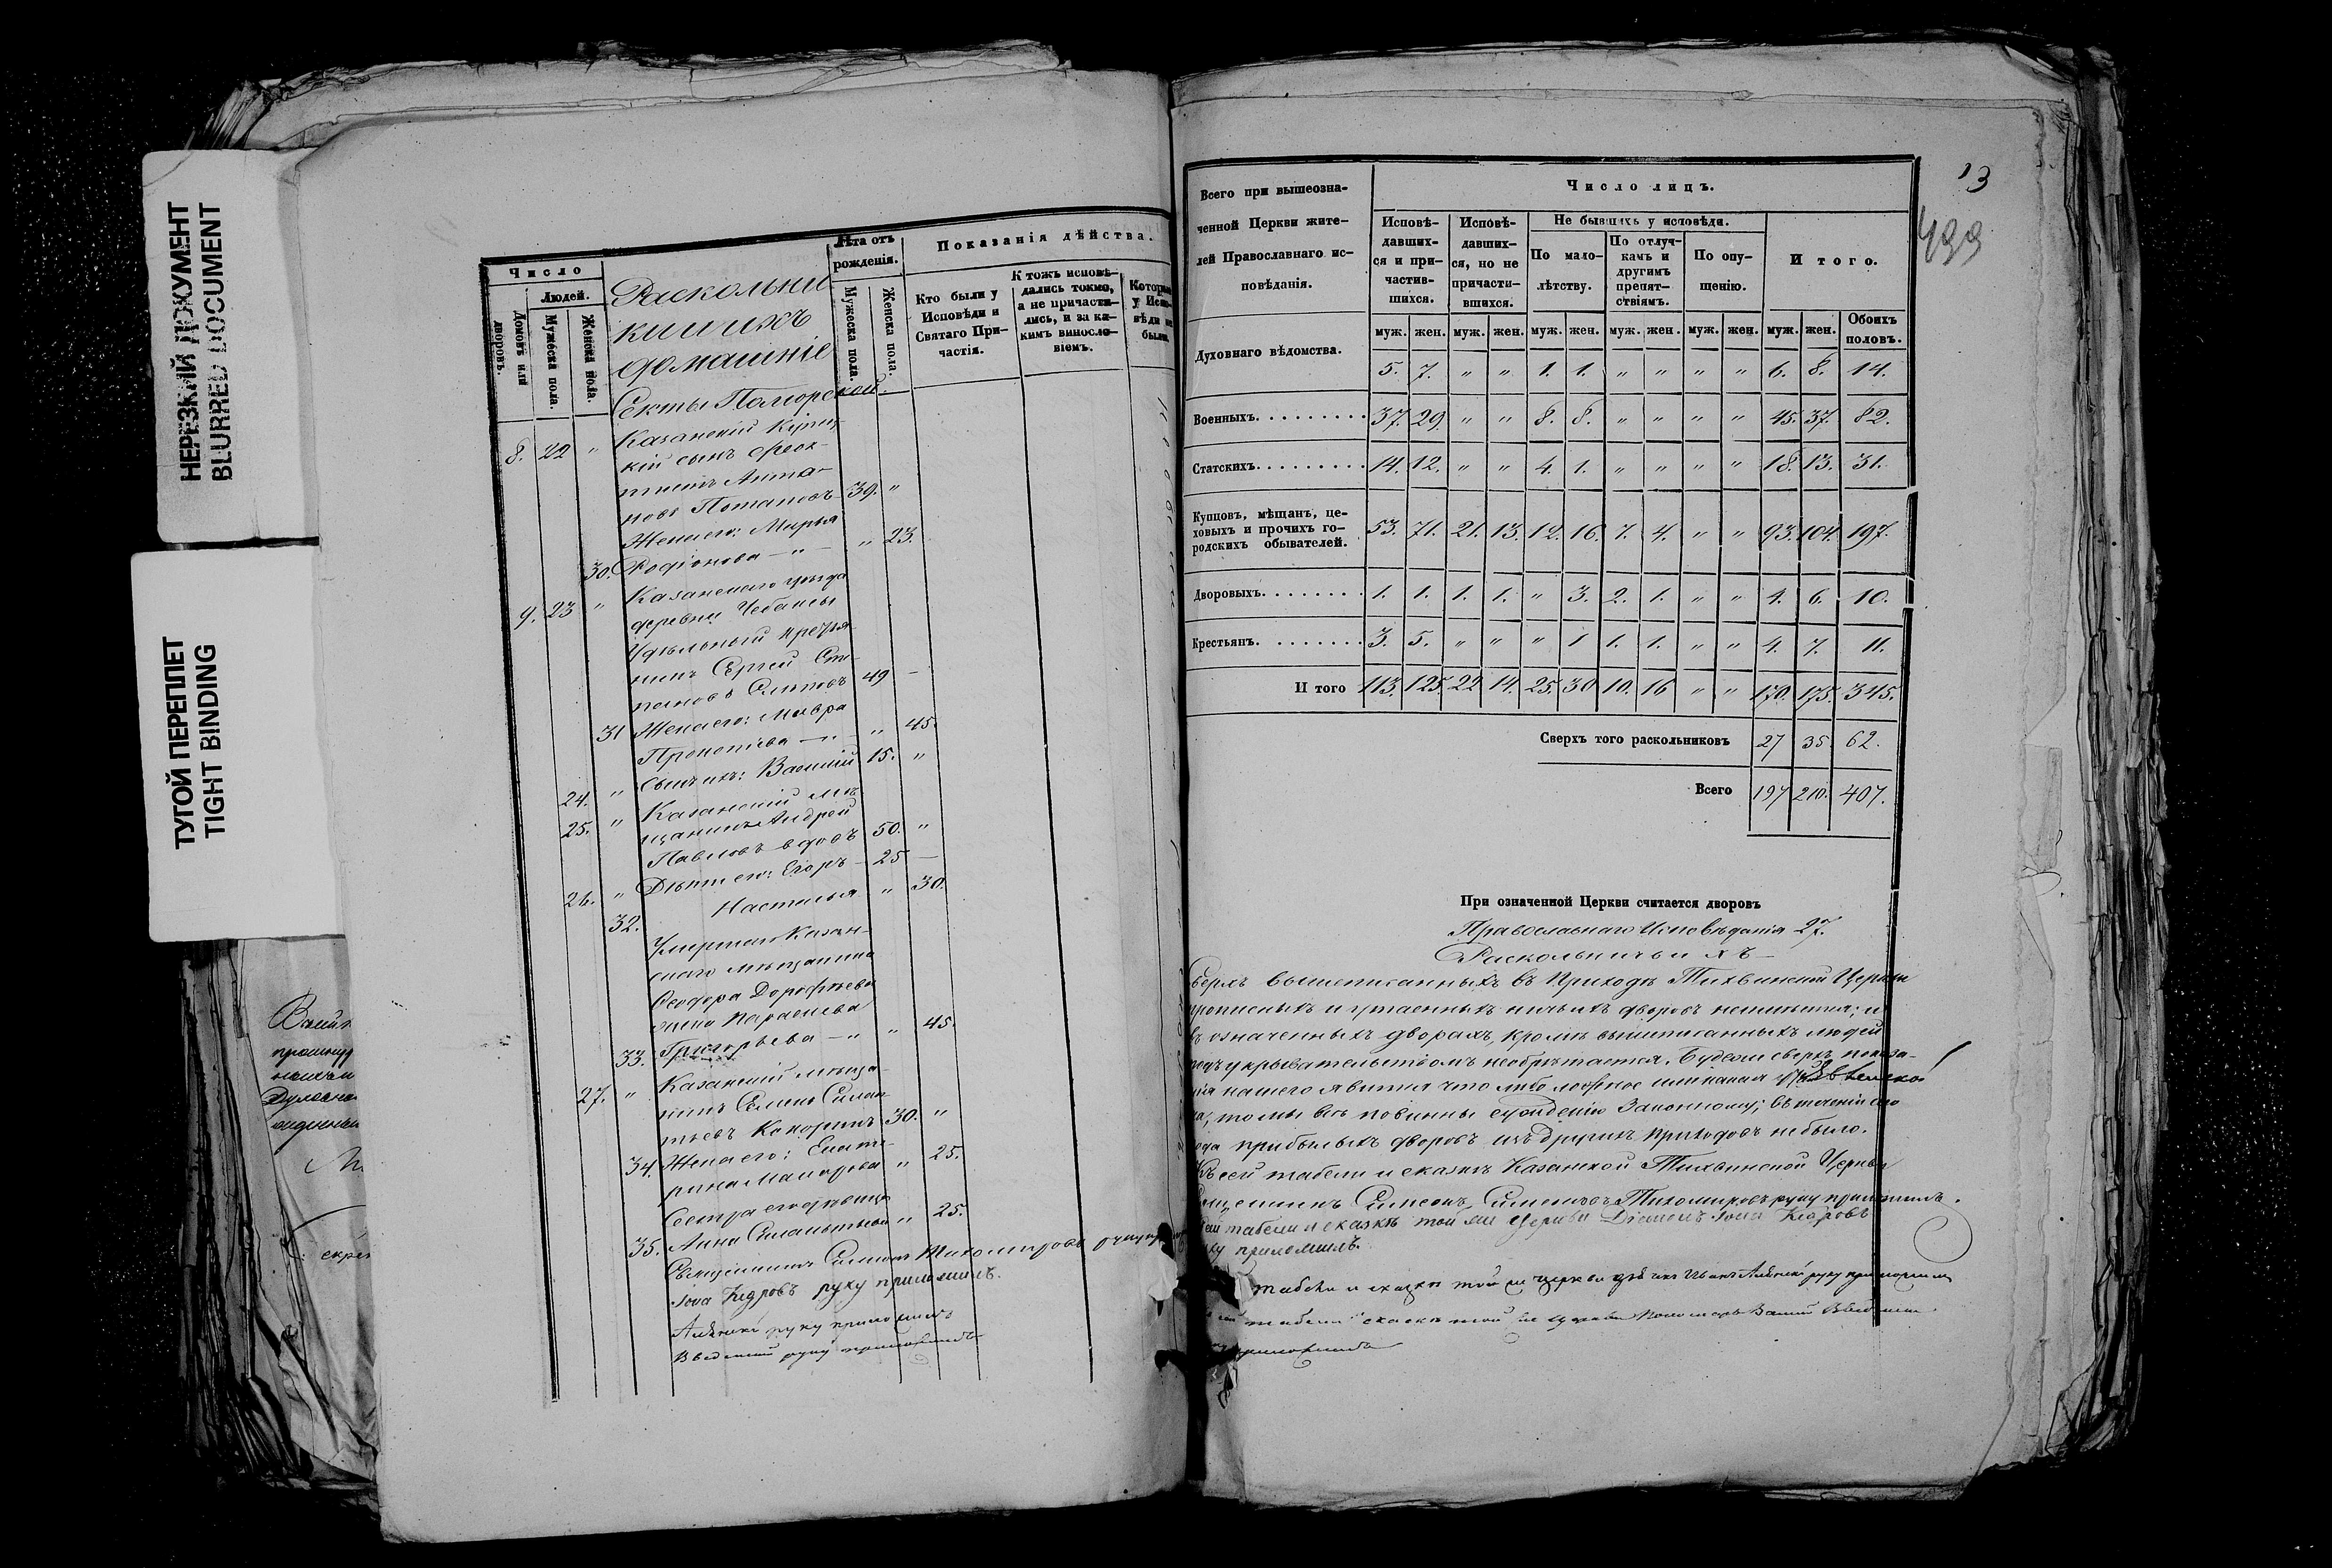 НЕРЕЗКИЙ ДОКУМЕНТ
BLURRED DOCUMENT
ТУГОЙ ПЕРЕПЛЕТ
TIGHT BINDING
Число
Людей.
Домовъ или дворовъ.
Мужеска пола.
Женска пола.
Раскольни
ки и ихъ
домашніе
Лѣта отъ рожденія.
Мужеска пола.
Женска пола.
Показанія дѣйства.
Кто были у Исповѣди и Святаго При-
частія.
К тожъ исповѣ-
дались токмо,
а не причасти-
лись, и за ка-
кимъ винosло-
віемъ.
Секты Поморской.
8. 22 "
Казанскій Купец-
кій сынъ
Потаповъ 39. "
Жена его: Марья
30. Родіонова — " — " 23.
9. 23 " Казанскаго уѣзда
деревни Чебаксы
Удѣльный крестья
нинъ Сергей Сте
пановъ 49 —
31 Жена его: Мавра
Прокопіева — " — " 45.
24. " Сынъ ихъ: Василій 15. "
25. " Казанскій мѣ
щанинъ Андрей
Павловъ вдовъ 50. "
26. " Дѣти его: Егоръ — 25 —
32. Настасья " 30.
Умершаго Казан-
скаго мѣщанина
Ѳеодора Дороѳѣева
жена Параскева
33. Григорьева — " " 45.
27. " Казанскій мѣща-
нинъ Семенъ Силан
тьевъ 30. "
34. Жена его: Екате-
рина Макарова " 25.
Сестра его дѣвица
35. Анна Силантьева " 25.
Священникъ Симеонъ Тихомировъ руку
Іона Кедровъ руку приложилъ.
руку приложилъ
Введенскій руку приложилъ
13
Всего при вышеозна-
ченной Церкви жите-
лей Православнаго ис-
повѣданія.
Число лицъ.
Исповѣ-
давших-
ся и при-
частив-
шихся.
Исповѣ-
давших-
ся, но не
причасти-
вшихся.
Не бывшихъ у исповѣди.
По мало-
лѣтству.
По отлуч-
камъ и
другимъ
препят-
ствіямъ.
По опу-
щенію.
Итого.
муж. жен. муж. жен. муж. жен. муж. жен. муж. жен. муж. жен. Обоихъ половъ.
Духовнаго вѣдомства. 5. 7. " " 1. 1. " " " " 6. 8. 14.
Военныхъ. 37. 29. " " 8. 8. " " " " 45. 37. 82.
Статскихъ. 14. 12. " " 4. 1. " " " " 18. 13. 31.
Купцовъ, мѣщанъ, це-
ховыхъ и прочихъ го-
родскихъ обывателей. 53. 71. 21. 13. 12. 16. 7. 4. " " 93. 104. 197.
Дворовыхъ. 1. 1. 1. 1. " 3. 2. 1. " " 4. 6. 10.
Крестьянъ. 3. 5. " " " 1 1. 1. " " 4. 7. 11.
Итого 113. 125. 22. 14. 25. 30. 10. 16 " " 170. 175. 345.
Сверхъ того раскольниковъ 27 35. 62.
Всего 197 210. 407.
При означенной Церкви считается дворовъ
Православнаго Исповѣданія 27.
Раскольничьихъ —
вышеписанныхъ въ Приходѣ Тихвинской Церкви
прописныхъ и утаенныхъ ничьихъ дворовъ неимѣется; и
въ означенныхъ дворахъ, кромѣ вышеписанныхъ людей
подъ укрывательствомъ необрѣтается. Будеже сверхъ показа-
нія нашего явится что либо ложное или какая
то мы всѣ повинны сужденію Законному; въ теченіи сего
года прибылыхъ дворовъ изъ другихъ приходовъ небыло.
Къ сей табели и сказкѣ Казанской Тихвинской Церкви
Священникъ Симеонъ Тихомировъ руку приложилъ.
сей табели и сказкѣ той же Церкви Діаконъ Іона Кедровъ
руку приложилъ.
табели и сказкѣ той же церкви дьячекъ Иванъ руку приложилъ
табели и сказкѣ той же церкви Пономарь Василій Введенскій
приложилъ